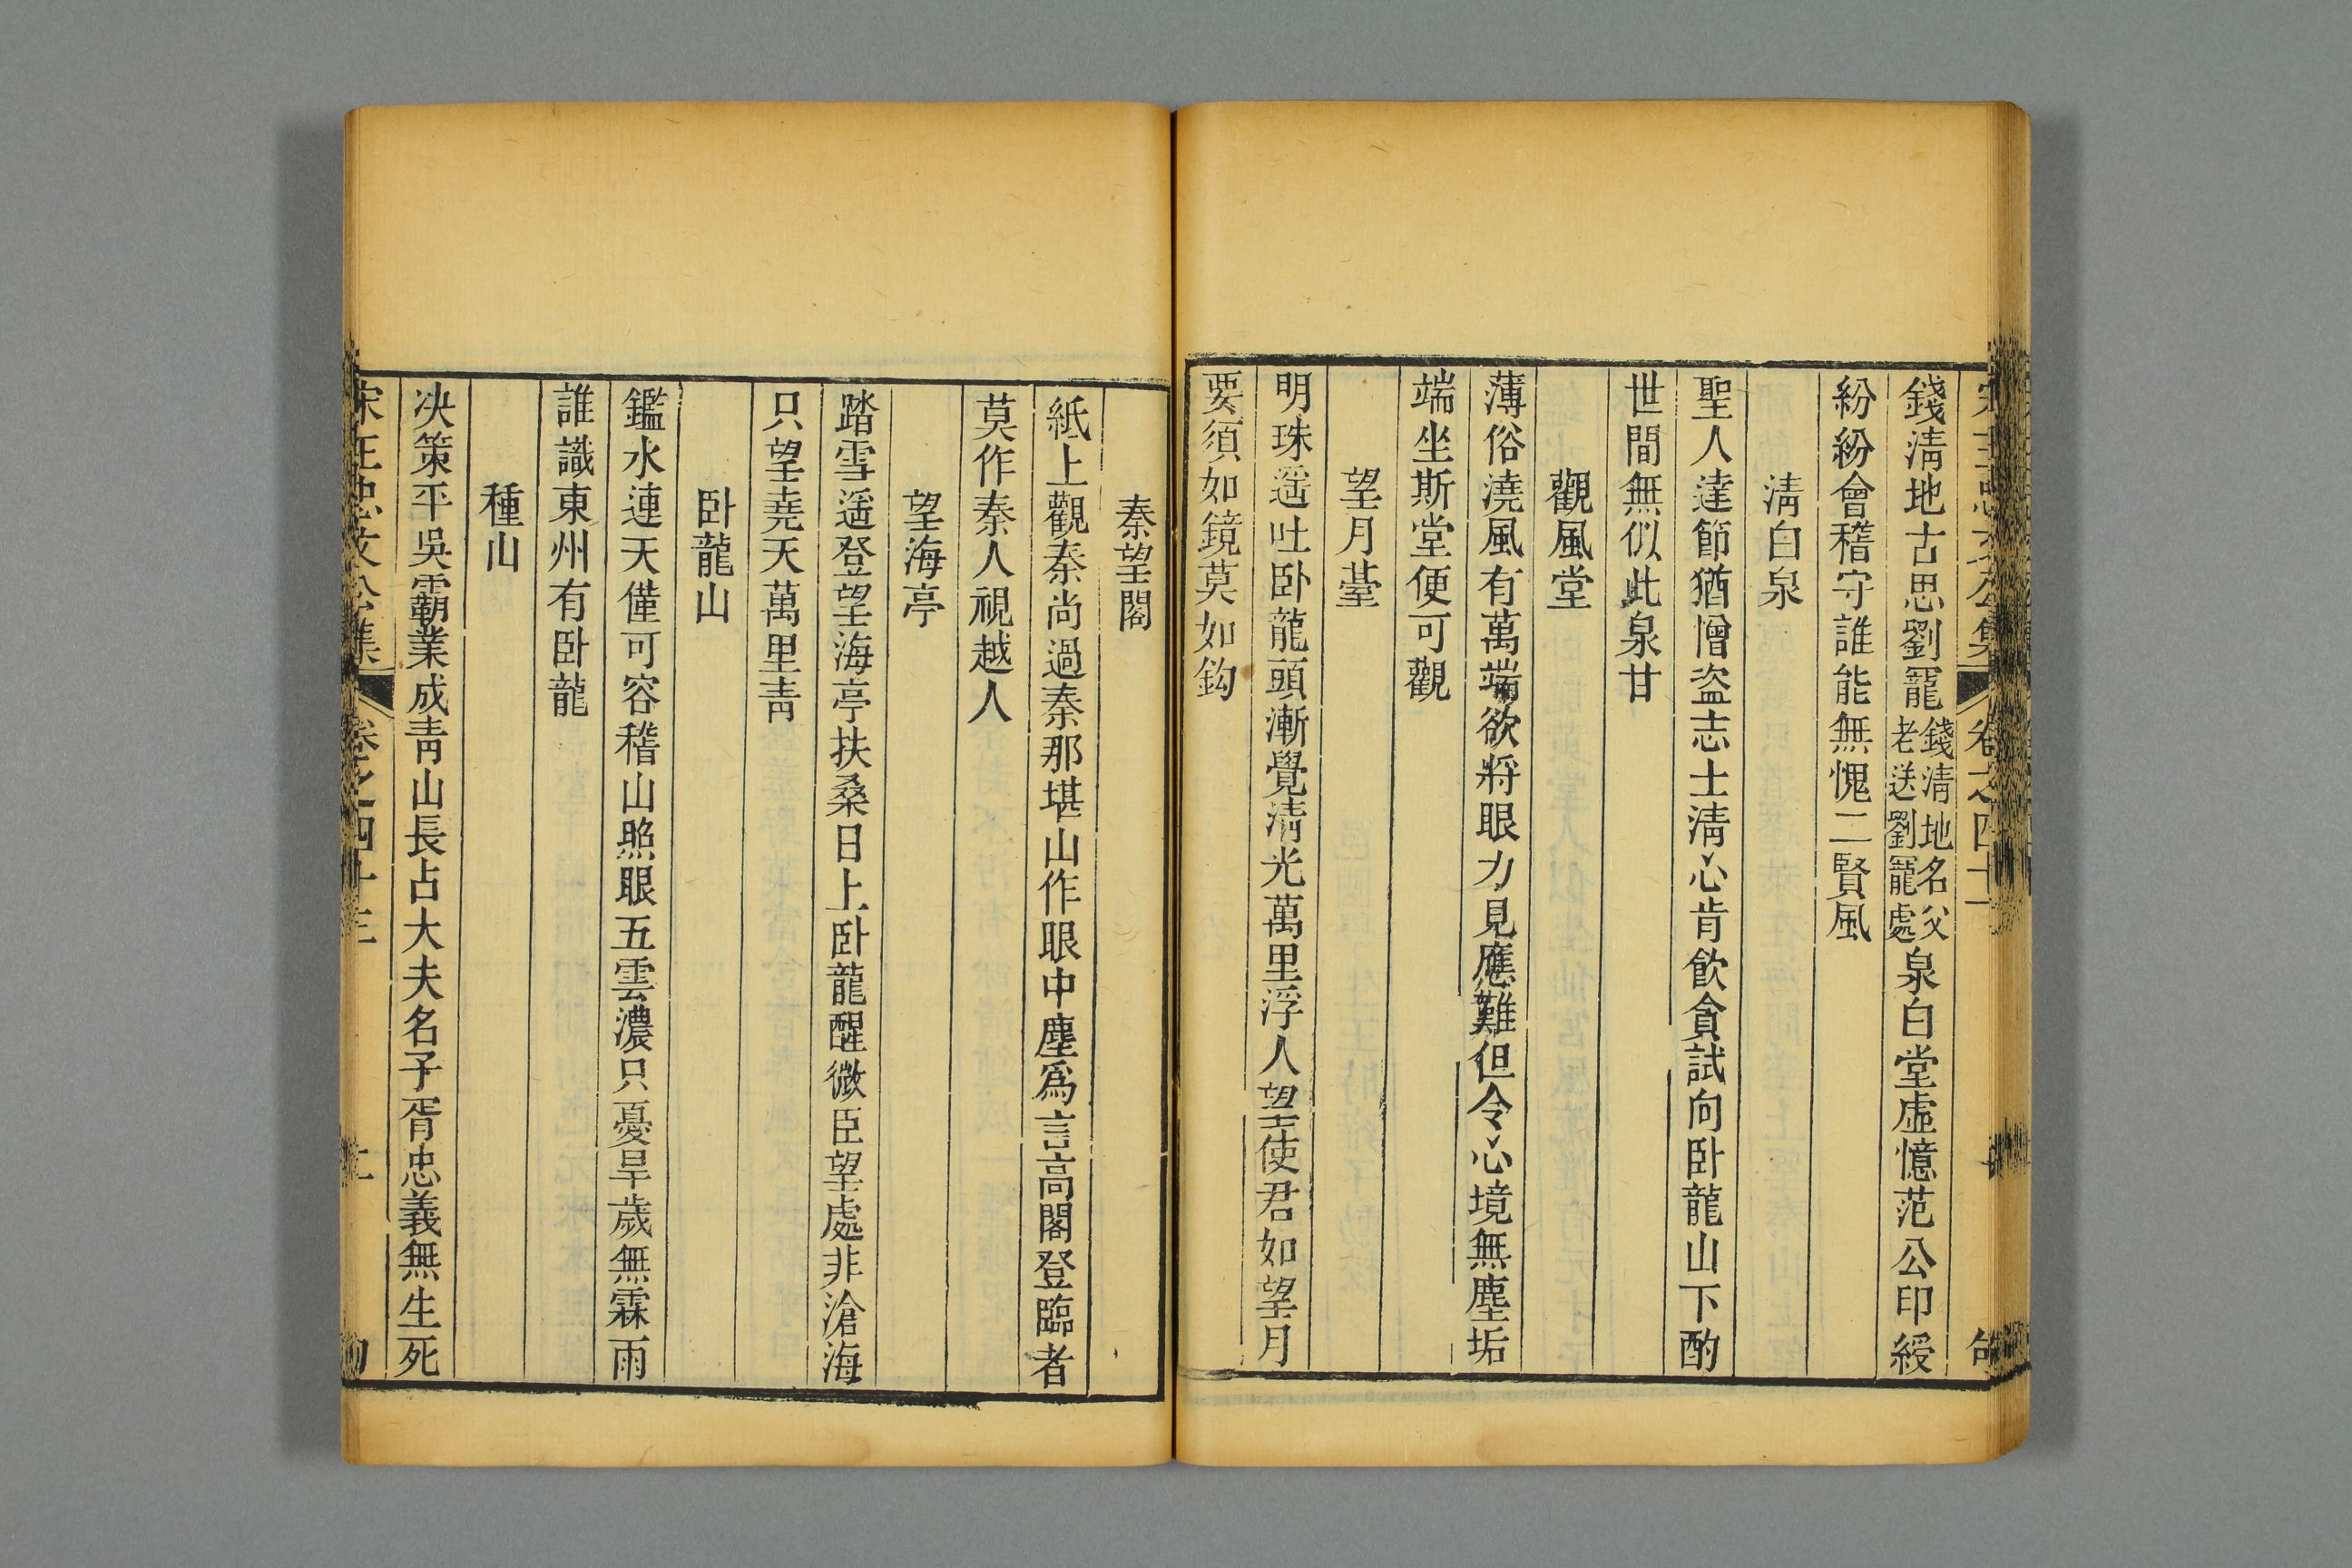 錢淸地古思劉寵錢淸地名父老送劉寵處泉白堂虛憶范公印綬
紛紛會稽守誰能無愧二賢風
淸白泉
聖人達節猶憎盗志士淸心肯飲貪試向卧龍山下酌
世間無似此泉甘
觀風堂
薄俗澆風有萬端欲將眼力見應難但令心境無塵垢
端坐斯堂便可觀
望月䑓
明珠遥吐卧龍頭漸覺淸光萬里浮人望使君如望月
要須如鏡莫如鈎
秦望閣
紙上觀秦尚過秦那堪山作眼中塵爲言高閣登臨者
莫作秦人視越人
望海亭
踏雪遥登望海亭扶桑日上卧龍醒微臣望處非滄海
只望堯天萬里靑
卧龍山
鑑水連天僅可容稽山照眼五雲濃只憂旱歲無霖雨
誰識東州有卧龍
種山
决策平吳霸業成靑山長占大夫名子胥忠義無生死
宋王忠文公集 卷之四十三